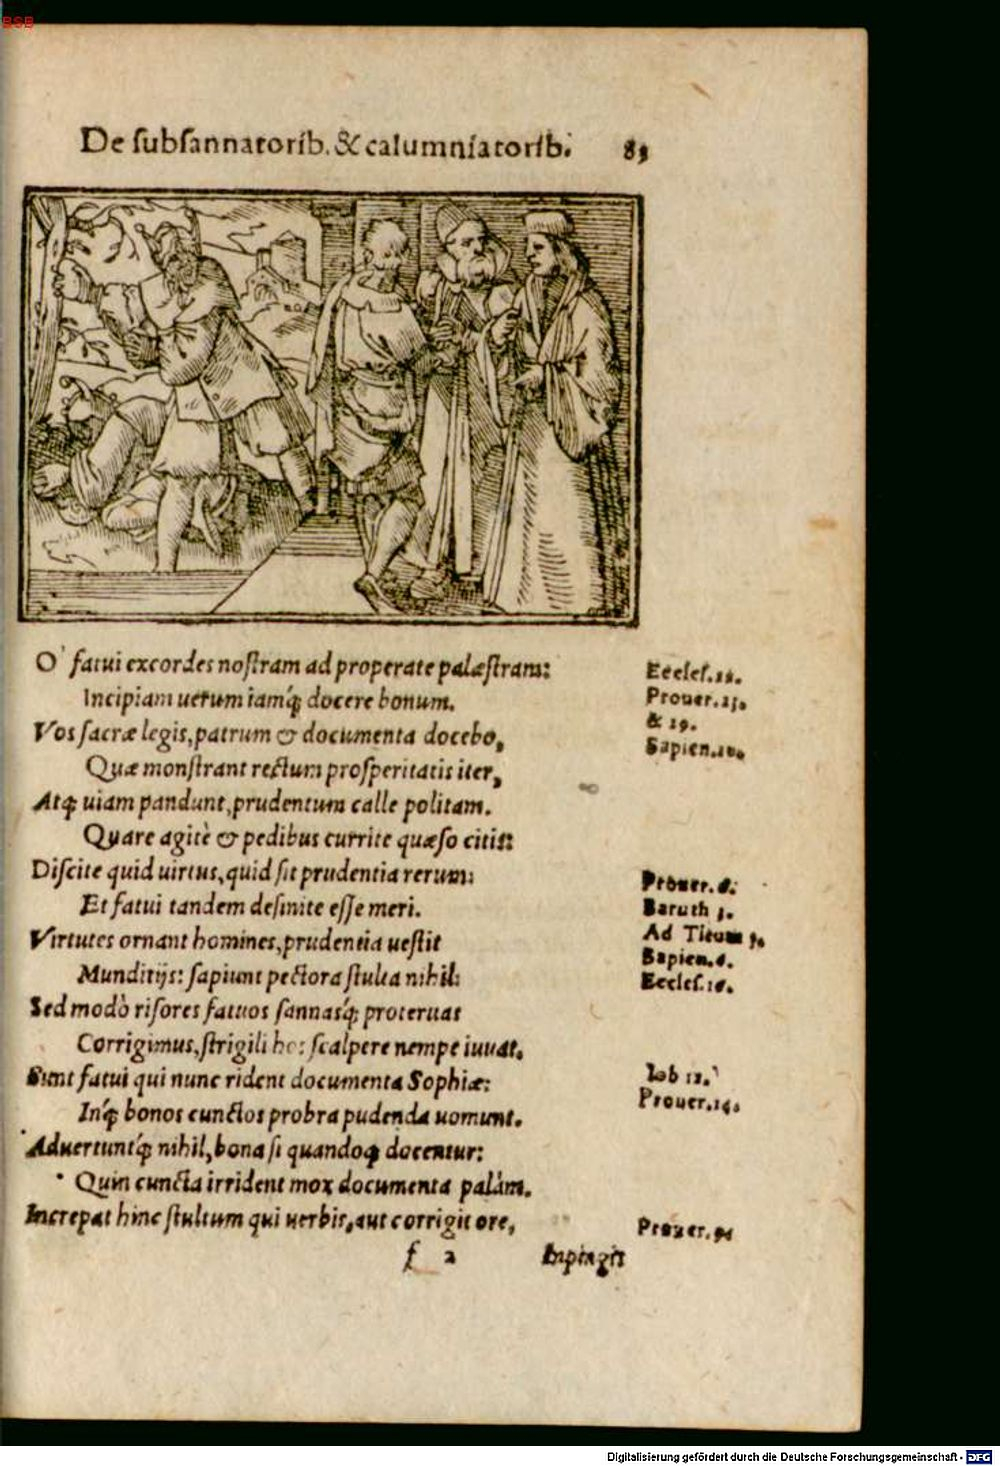 BSB
De ſubſannatorib. & calumniatorib. 83
O fatui excordes noſtram ad properate palæſtram:
Incipiam uerum iamq́ꝫ docere bonum.
Vos ſacræ legis, patrum & documenta docebo,
Quæ monſtrant rectum proſperitatis iter,
Atqꝫ uiam pandunt, prudentum calle politam.
Quare agitè & pedibus currite quæſo citis:
Diſcite quid uirtus, quid ſit prudentia rerum:
Et fatui tandem deſinite eſſe meri.
Virtutes ornant homines, prudentia ueſtit
Munditijs: ſapiunt pectora ſtulta nihil:
Sed modò riſores fatuos ſannasq́ꝫ proteruas
Corrigimus, ſtrigili hos ſcalpere nempe iuuat.
Sunt fatui qui nunc rident documenta Sophiæ:
Inq́ꝫ bonos cunctos probra pudenda uomunt.
Aduertuntq́ꝫ nihil, bona ſi quandoqꝫ docentur:
Quin cuncta irrident mox documenta palàm.
Increpat hinc ſtultum qui uerbis, aut corrigit ore,
f 2 Inpingit
Eccleſ.
Prouer.
& 19.
Sapien.
Prouer.
Baruth 3.
Ad Titum
Sapien.
Eccleſ.
Iob 12.
Prouer. 14.
Prouer.
Digitalisierung gefördert durch die Deutsche Forschungsgemeinschaft - DFG